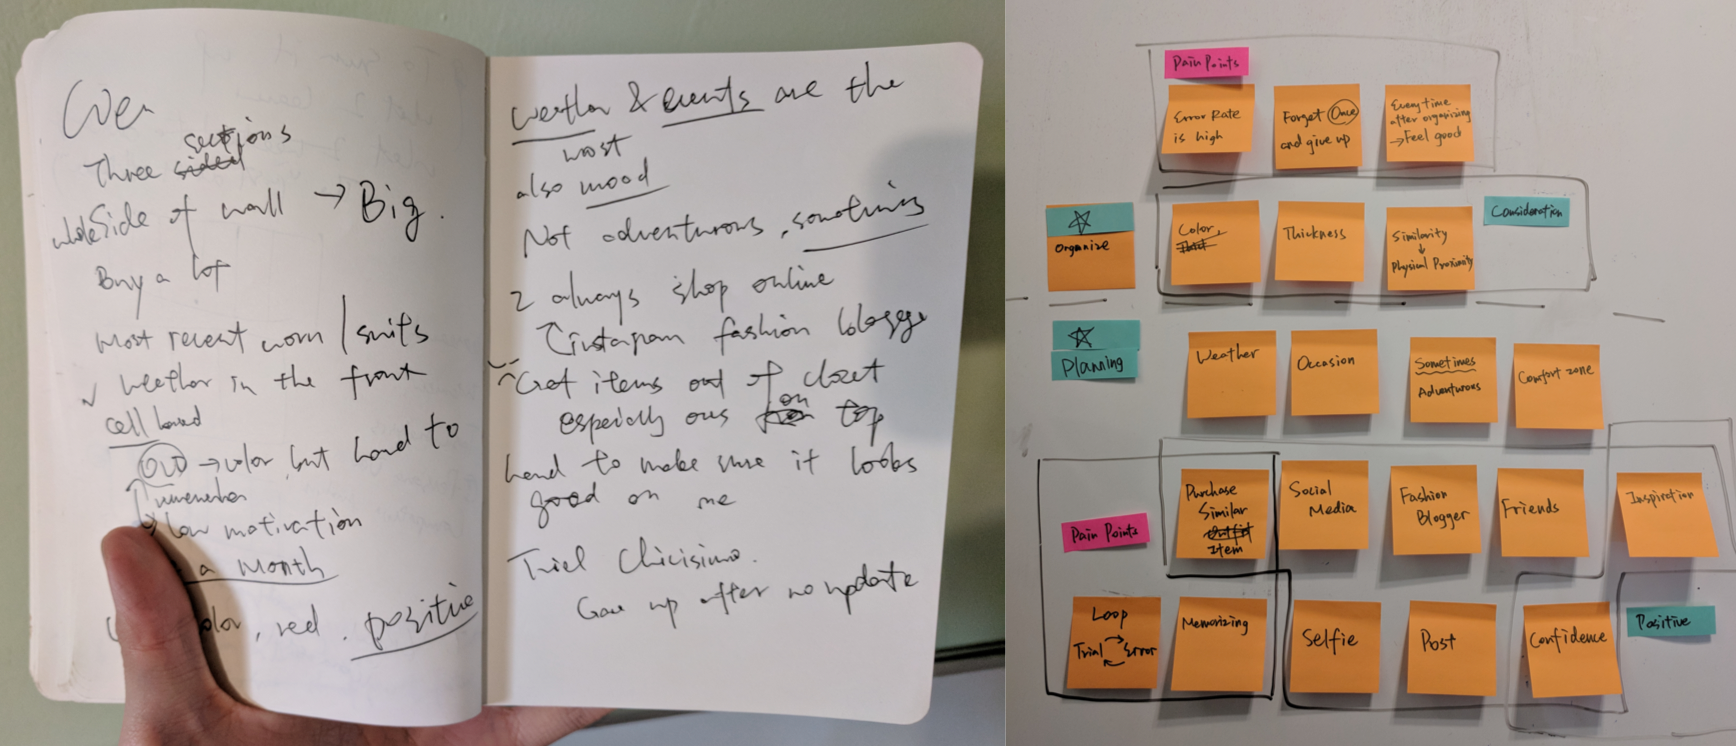 Three sections
whole side of wall → Big.
Buy a lot
most recent worn / suits
✓ weather in the front
→ color, but hard to
remember
low motivation
a month
color, red. positive
weather & events are the
most
also mood
Not adventurous, sometimes
2 always shop online
Instagram fashion
Get items out of closet
especially on top
hard to make sure it looks
good on me
Tried Chicisimo.
Gave up after no update
Pain Points
Error Rate
is high
Forget Once
and give up
Every time
after organizing
→ Feel good
Organize
Color,
Thickness
Similarity
↓
Physical Proximity
Consideration
Planning
Weather
Occasion
Sometimes
Adventurous
Comfort zone
Pain Points
Purchase
Similar
Outfit
Item
Social
Media
Fashion
Blogger
Friends
Inspiration
Loop
Trial Error
Memorizing
Selfie
Post
Confidence
Positive